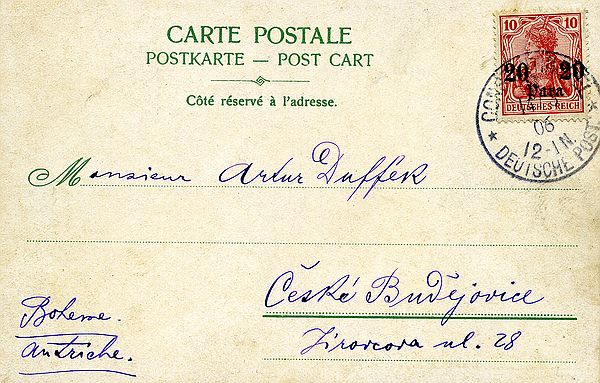 CARTE POSTALE
POSTKARTE — POST CART
Côté réservé à l'adresse.
10 10
20 20
Para
DEUTSCHES REICH
06
12-1N.
* DEUTSCHE POST *
Monsieur Artur Duffek
České Budějovice
Jirovcova ul. 28
Boheme.
Autriche.